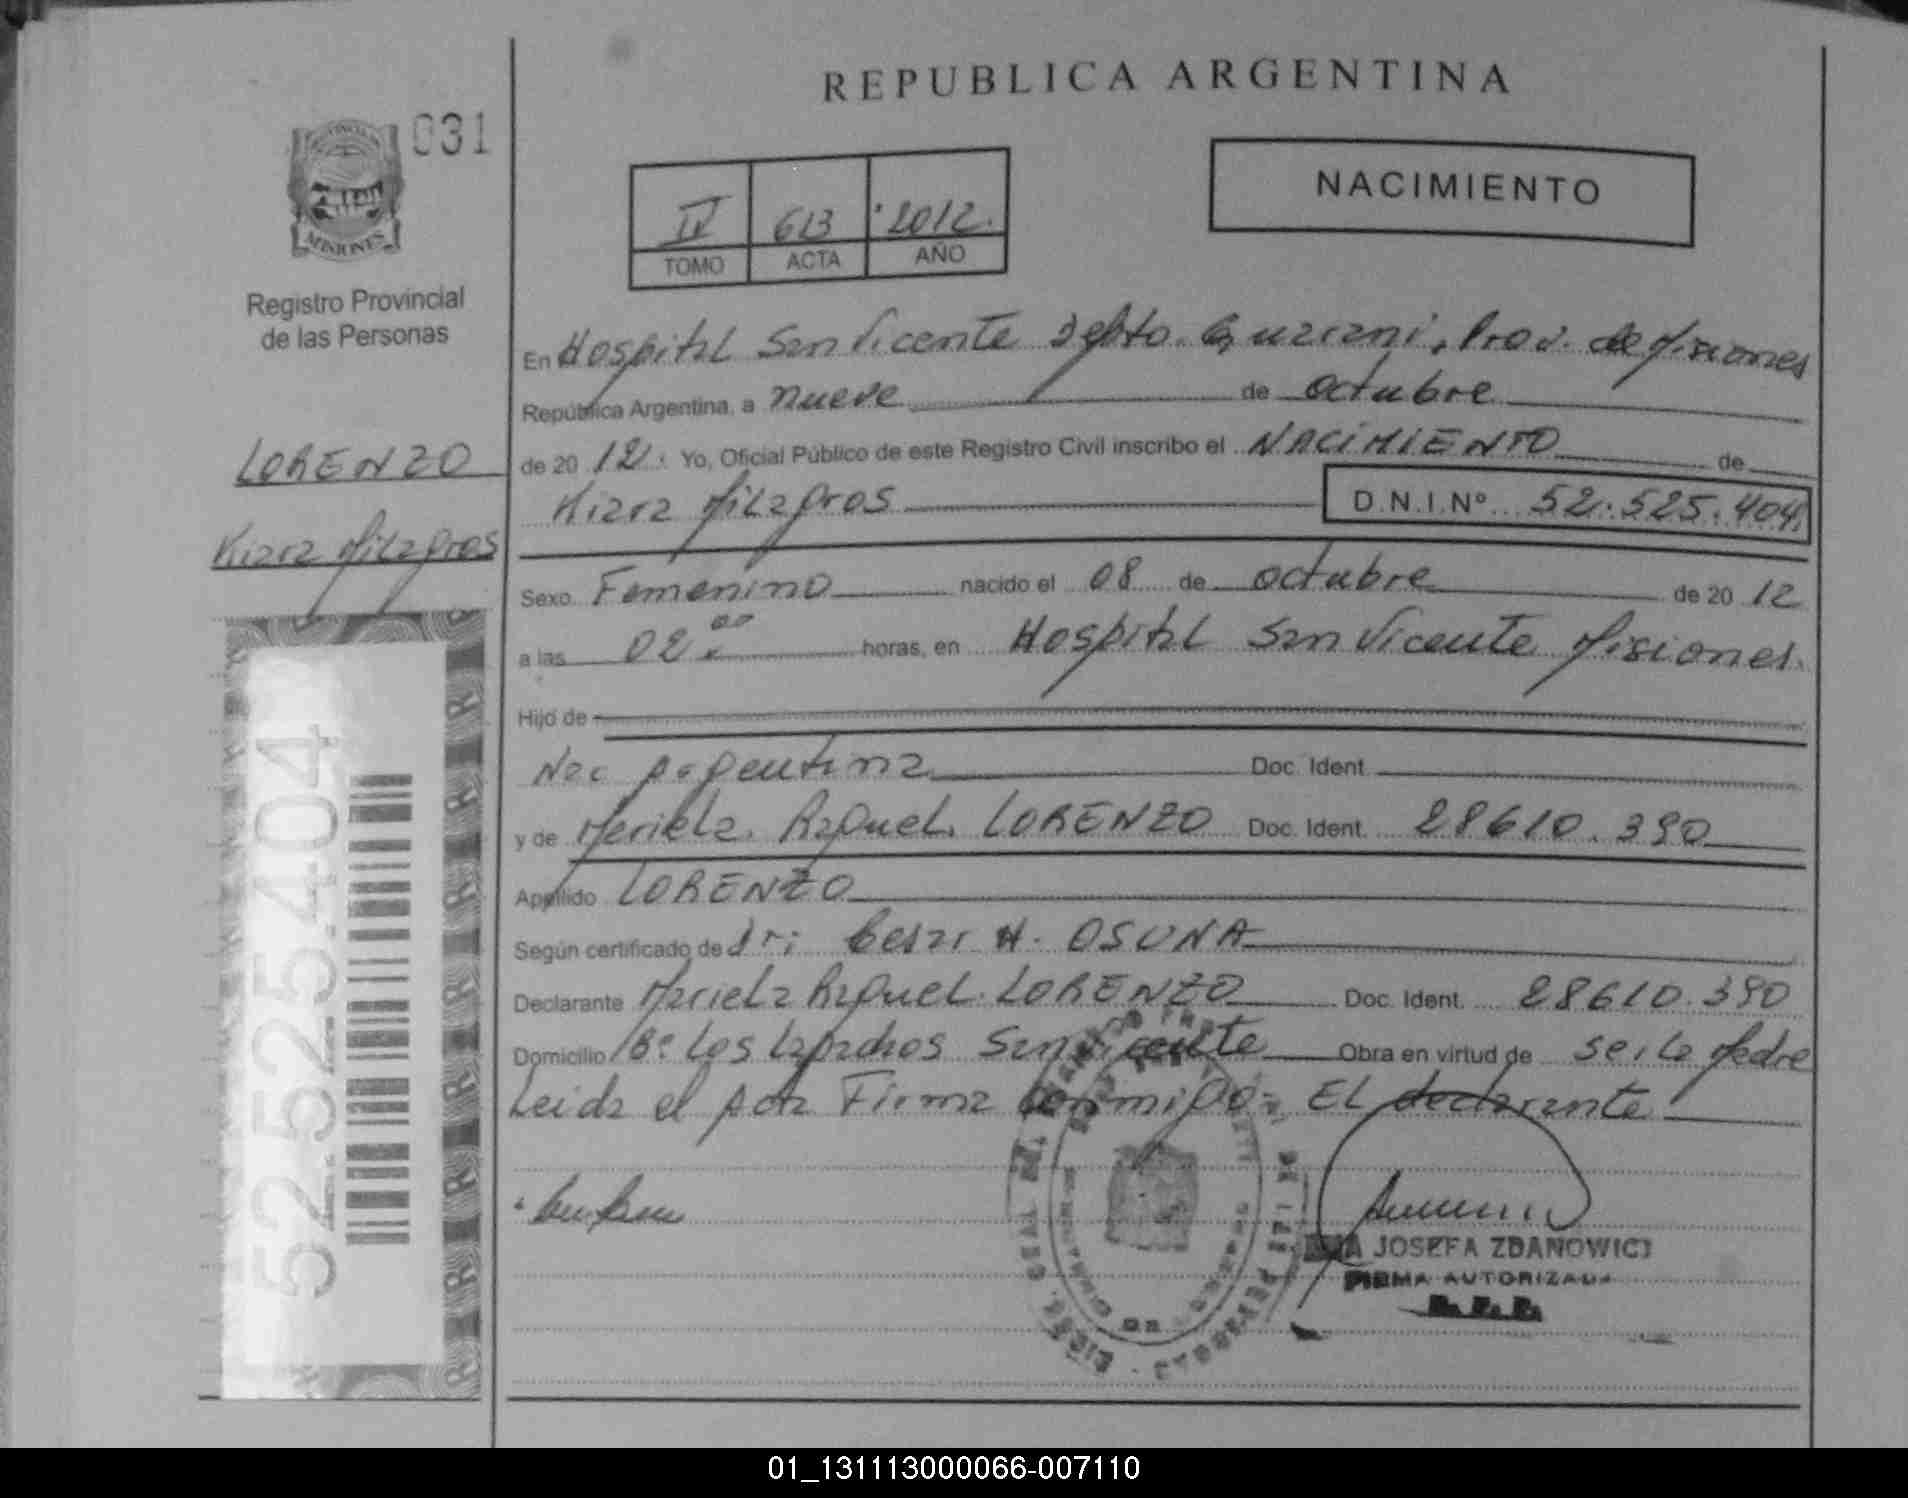 REPUBLICA ARGENTINA
031
MISIONES
Registro Provincial
de las Personas
IV 613 2012.
TOMO ACTA AÑO
NACIMIENTO
LORENZO
Kiara Milagros
52525404
En Hospital San Vicente Depto. Guarani, Prov. de Misiones
República Argentina, a nueve de octubre
de 20 12. Yo, Oficial Público de este Registro Civil inscribo el NACIMIENTO de
Kiara Milagros D.N.I.Nº 52.525.404.
Sexo Femenino nacido el 08 de octubre de 20 12
a las 02.00 horas, en Hospital San Vicente Misiones.
Hijo de
Nac Argentina Doc. Ident.
y de Mariela Raquel LORENZO Doc. Ident. 28610.390
Apellido LORENZO
Según certificado de Dr: Cesar H. OSUNA
Declarante Mariela Raquel LORENZO Doc. Ident. 28610.390
Domicilio Bº Los Lapachos San Vicente Obra en virtud de ser la Madre
Leida el Acta Firma conmigo: El declarante
JOSEFA ZDANOWICZ
FIRMA AUTORIZADA
01_131113000066-007110